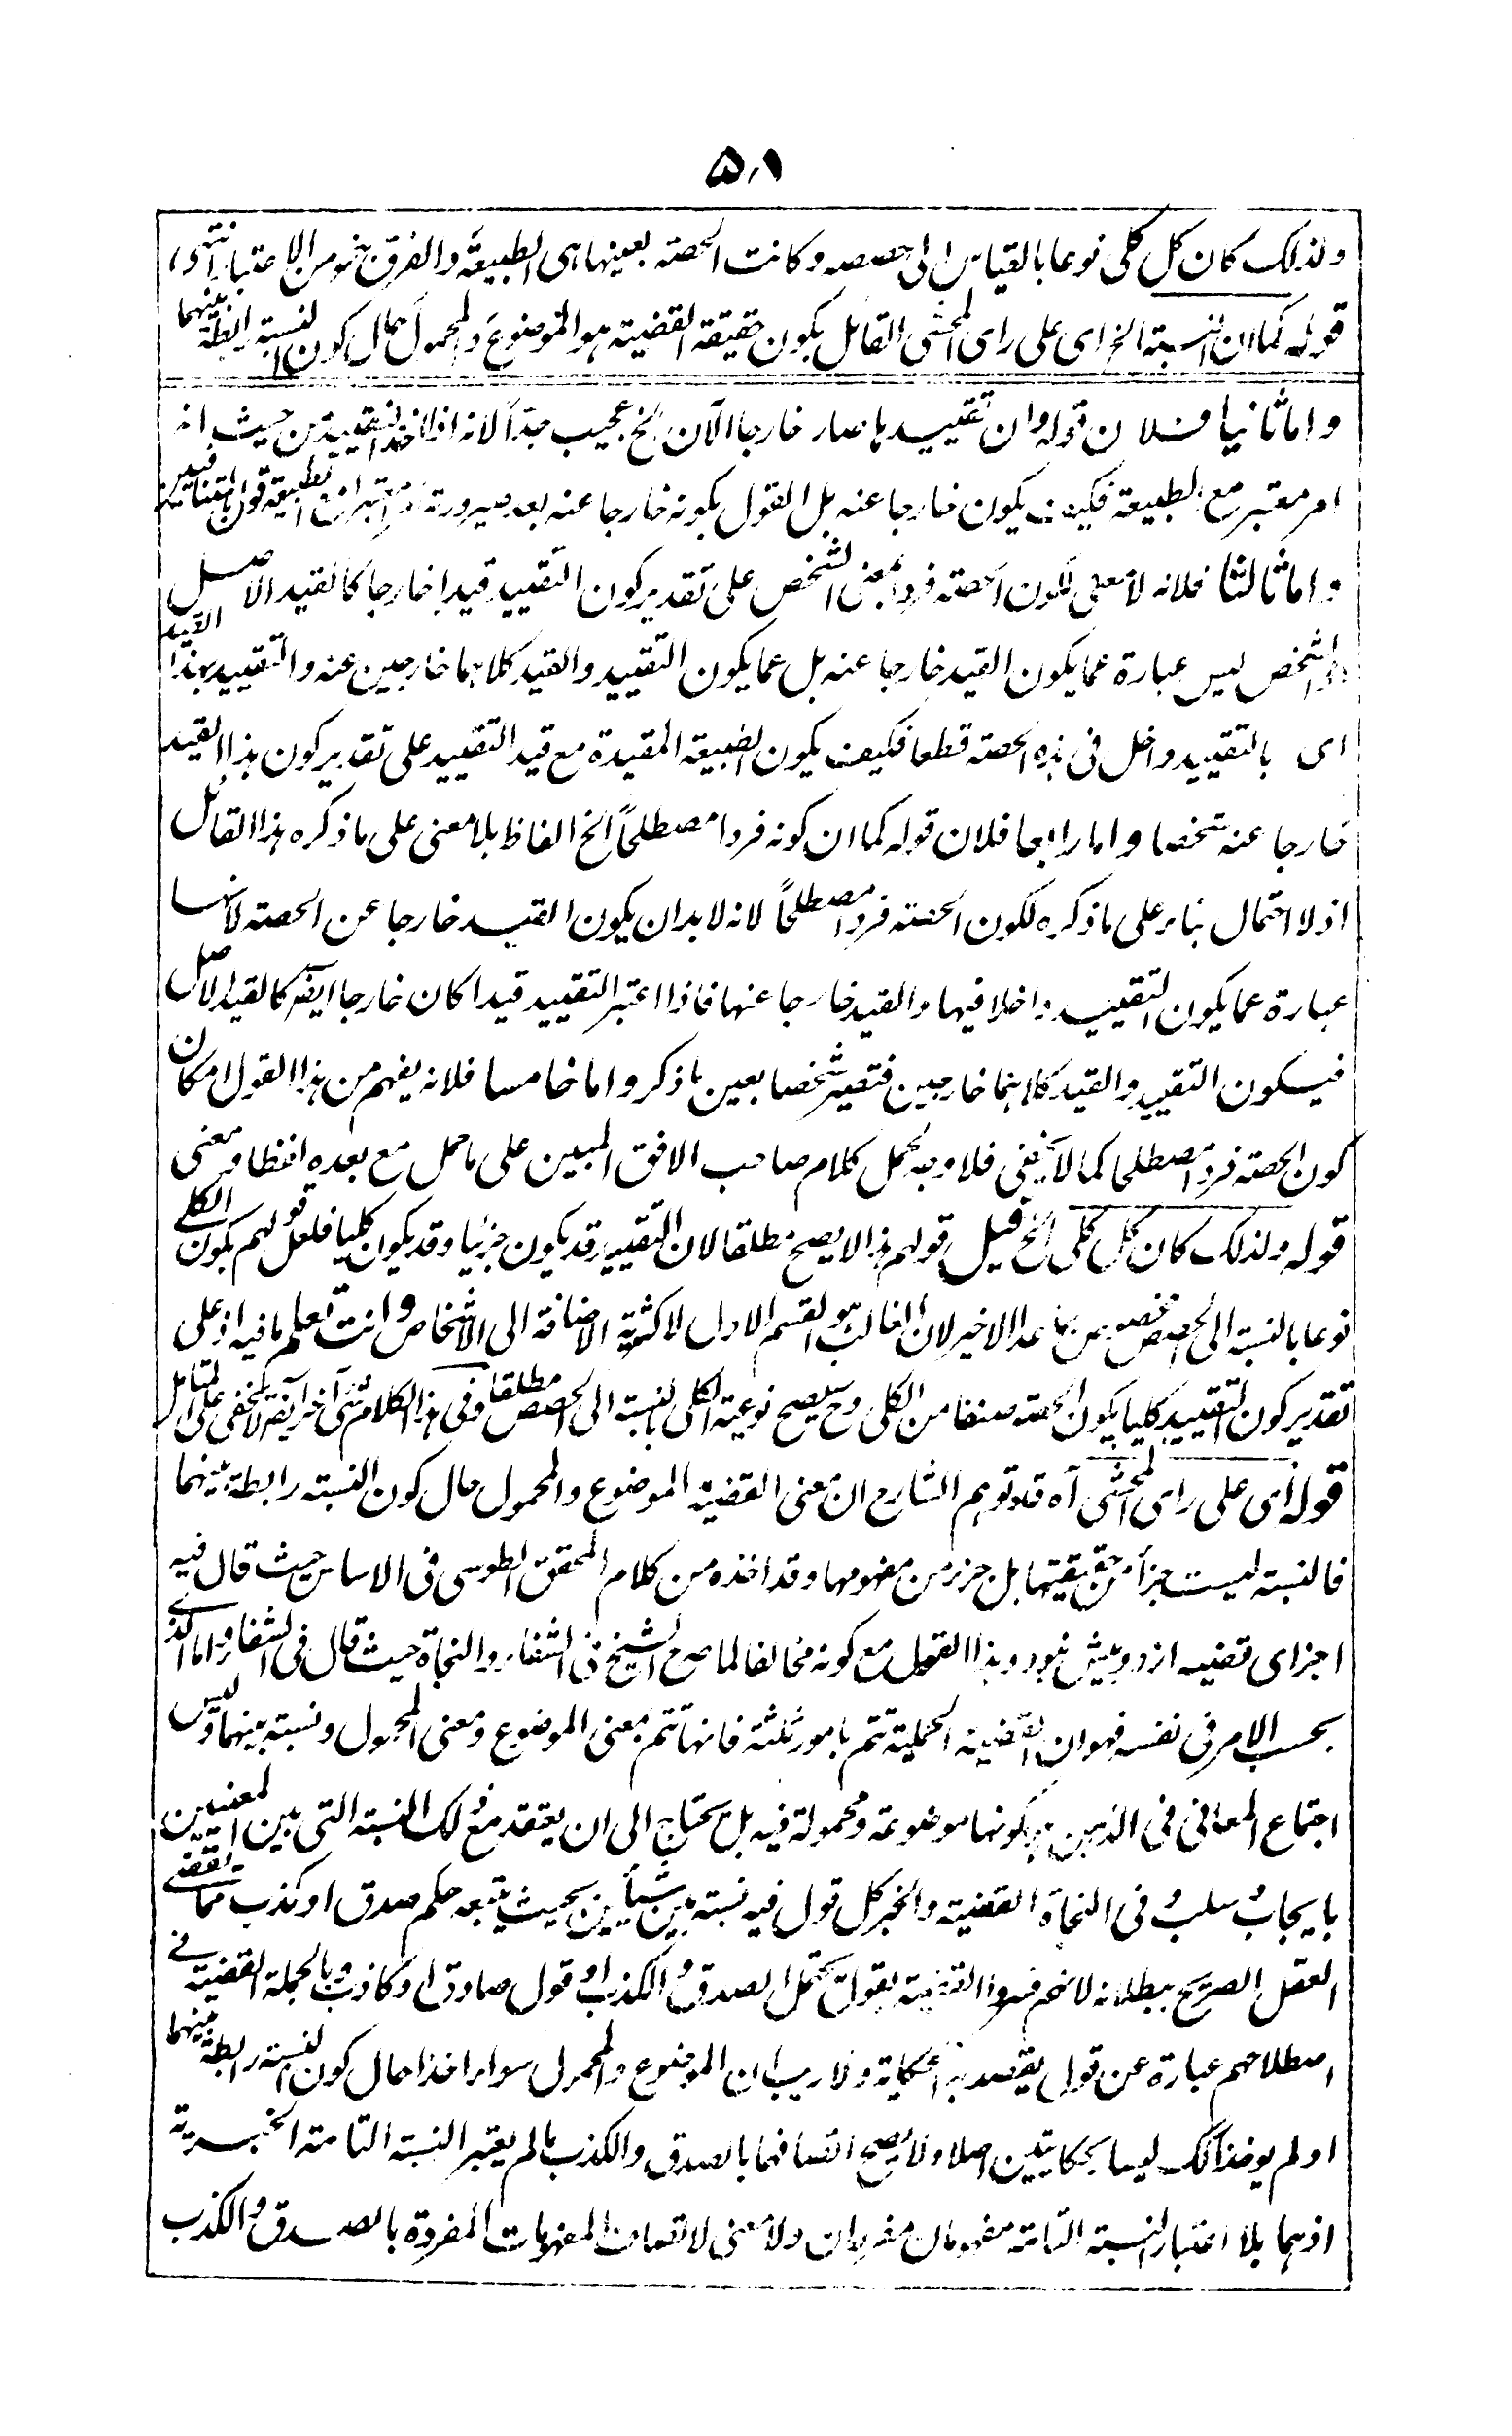 ۵۰۱
ولذلك كان كل كلى نوعا بالقياس الى حصصه وكانت الحصة بعينها هى الطبيعة والفرق بنحو من الاعتبار انتهى
قوله كما ان النسبة الخ اى على راى المحشى القائل بكون حقيقة القضية هو الموضوع والمحمول حال كون النسبة رابطة بينهما
واما ثانيا فلان قوله وان تقييدها صار خارجا الآن الخ عجيب جدّاً لانه اذا اخذ التقييد من حيث انه
امر معتبر مع الطبيعة فكيف يكون خارجا عنه بل القول بكونه خارجا عنه بعد صيرورته امرا معتبرا مع الطبيعة قول بالمتنافيين
واما ثالثا فلانه لا معنى لكون الحصة فردا بمعنى الشخص على تقدير كون التقييد قيدا خارجا كالقيد الاصل
اذ الشخص ليس عبارة عما يكون القيد خارجا عنه بل عما يكون التقييد والقيد كلاهما خارجين عنه والتقييد بهذا القيد
اى بالتقييد داخل فى هذه الحصة قطعا فكيف يكون الطبيعة المقيدة مع قيد التقييد على تقدير كون هذا القيد
خارجا عنه شخصا واما رابعا فلان قوله كما ان كونه فردا مصطلحاً الخ الفاظ بلا معنى على ما ذكره هذا القائل
اذ لا احتمال بناء على ما ذكره لكون الحصة فردا مصطلحاً لانه لا بد ان يكون القيد خارجا عن الحصة لانها
عبارة عما يكون التقييد داخلا فيها والقيد خارجا عنها فاذا اعتبر التقييد قيدا كان خارجا ايضا كالقيد الاصل
فيكون التقييد والقيد كلاهما خارجين فتصير شخصا بعين ما ذكر واما خامسا فلانه يفهم من هذا القول امكان
كون الحصة فردا مصطلحا كما لا يخفى فلا وجه لحمل كلام صاحب الافق المبين على ما حمل مع بعده لفظا ومعنى
قوله ولذلك كان كل كلى الخ قيل قولهم هذا لا يصح مطلقا لان التقييد قد يكون جزئيا وقد يكون كليا فلعل قولهم بكون الكلى
نوعا بالنسبة الى الحصص مخصوص بما عدا الاخير لان الغالب هو القسم الاول لاكثرية الاضافة الى الاشخاص وانت تعلم ما فيه اذ على
تقدير كون التقييد كليا يكون الحصة صنفا من الكلى وح يصح نوعية الكلى بالنسبة الى الحصص مطلقا وفى هذا الكلام شئ آخر ايضا لا يخفى على المتامل
قوله اى على راى المحشى آه قد توهم الشارح ان معنى القضية الموضوع والمحمول حال كون النسبة رابطة بينهما
فالنسبة ليست جزأ من حقيقتها بل جزء من مفهومها وقد اخذه من كلام المحقق الطوسى فى الاساس حيث قال فيه
اجزاى قضيه از دو بيش نبود وهذا القول مع كونه مخالفا لما صرح الشيخ فى الشفاء والنجاة حيث قال فى الشفاء واما الذى
بحسب الامر فى نفسه فهو ان القضية الحملية تتم بامور ثلثة فانها تتم بمعنى الموضوع ومعنى المحمول ونسبة بينهما وليس
اجتماع المعانى فى الذهن بكونها موضوعة ومحمولة فيه بل يحتاج الى ان يعتقد مع ذلك النسبة التى بين المعنيين
بايجاب او سلب وفى النجاة القضية والخبر كل قول فيه نسبة بين شيئين بحيث يتبعه حكم صدق او كذب مما يقضى
العقل الصريح ببطلانه لانهم فسروا القضية بقول يحتمل الصدق والكذب او قول صادق او كاذب وبالجملة القضية فى
اصطلاحهم عبارة عن قول يقصد به الحكاية ولا ريب ان الموضوع والمحمول سواء اخذا حال كون النسبة رابطة بينهما
او لم يوخذا كذلك ليسا بحكايتين اصلا ولا يصح اتصافهما بالصدق والكذب ما لم يعتبر النسبة التامة الخبرية
اذ هما بلا اعتبار النسبة التامة مفهومان مفردان ولا معنى لاتصاف المفهومات المفردة بالصدق والكذب